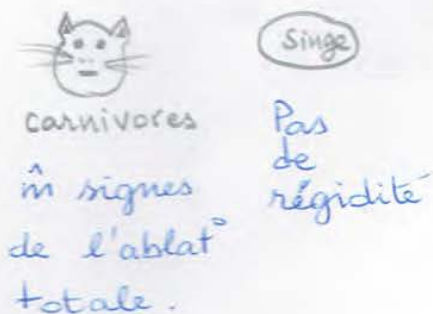 carnivores
m̂ signes
de l'ablat°
totale.
Singe
Pas
de
régidité